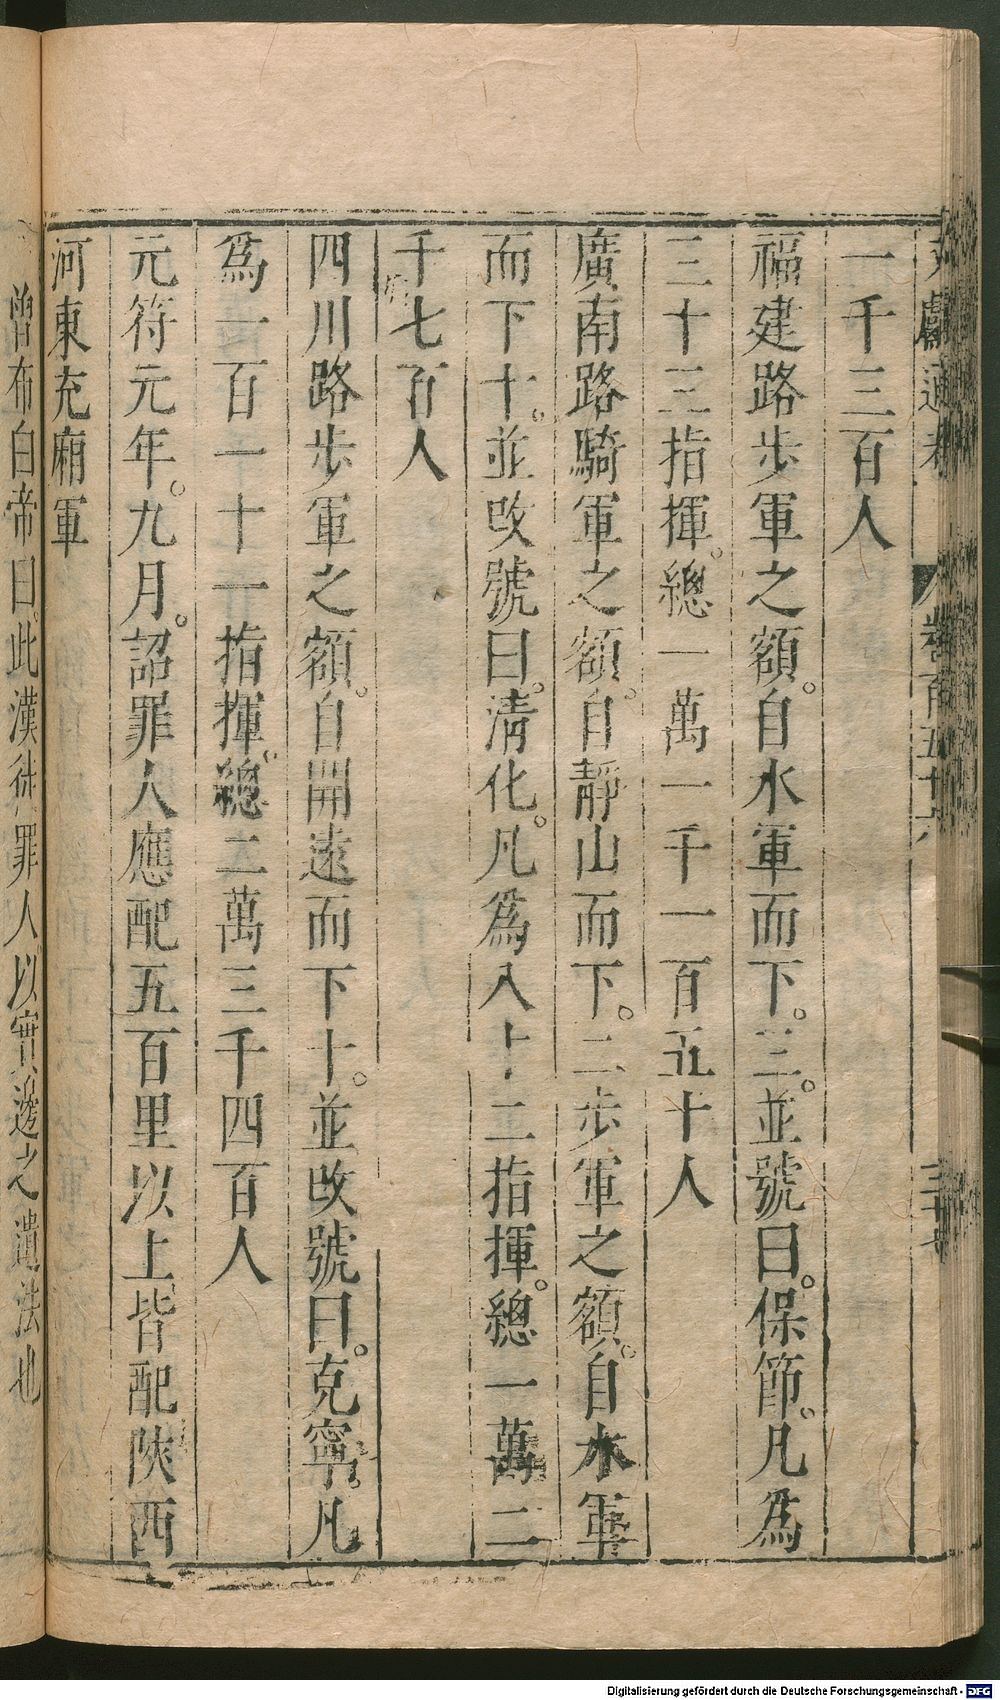 文獻通考 卷百五十六 三十七
一千三百人
福建路步軍之額。自水軍而下。三。並號曰。保節。凡為
三十三指揮。總一萬一千一百五十人
廣南路騎軍之額。自靜山而下。二步軍之額。自水軍
而下十。並改號曰。清化。凡為八十二指揮。總一萬二
千七百人
四川路步軍之額。自開遠而下十。並改號曰。克寧。凡
為一百一十一指揮。總二萬三千四百人
元符元年。九月。詔罪人應配五百里以上皆配陝西
河東充廂軍
曾布白帝曰。此漢徙罪人以實邊之遺法也
Digitalisierung gefördert durch die Deutsche Forschungsgemeinschaft - DFG